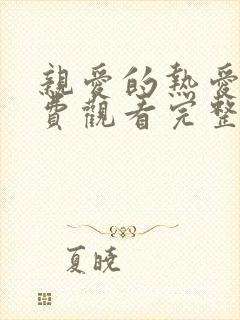 親愛的熱愛
費觀看完整
夏曉